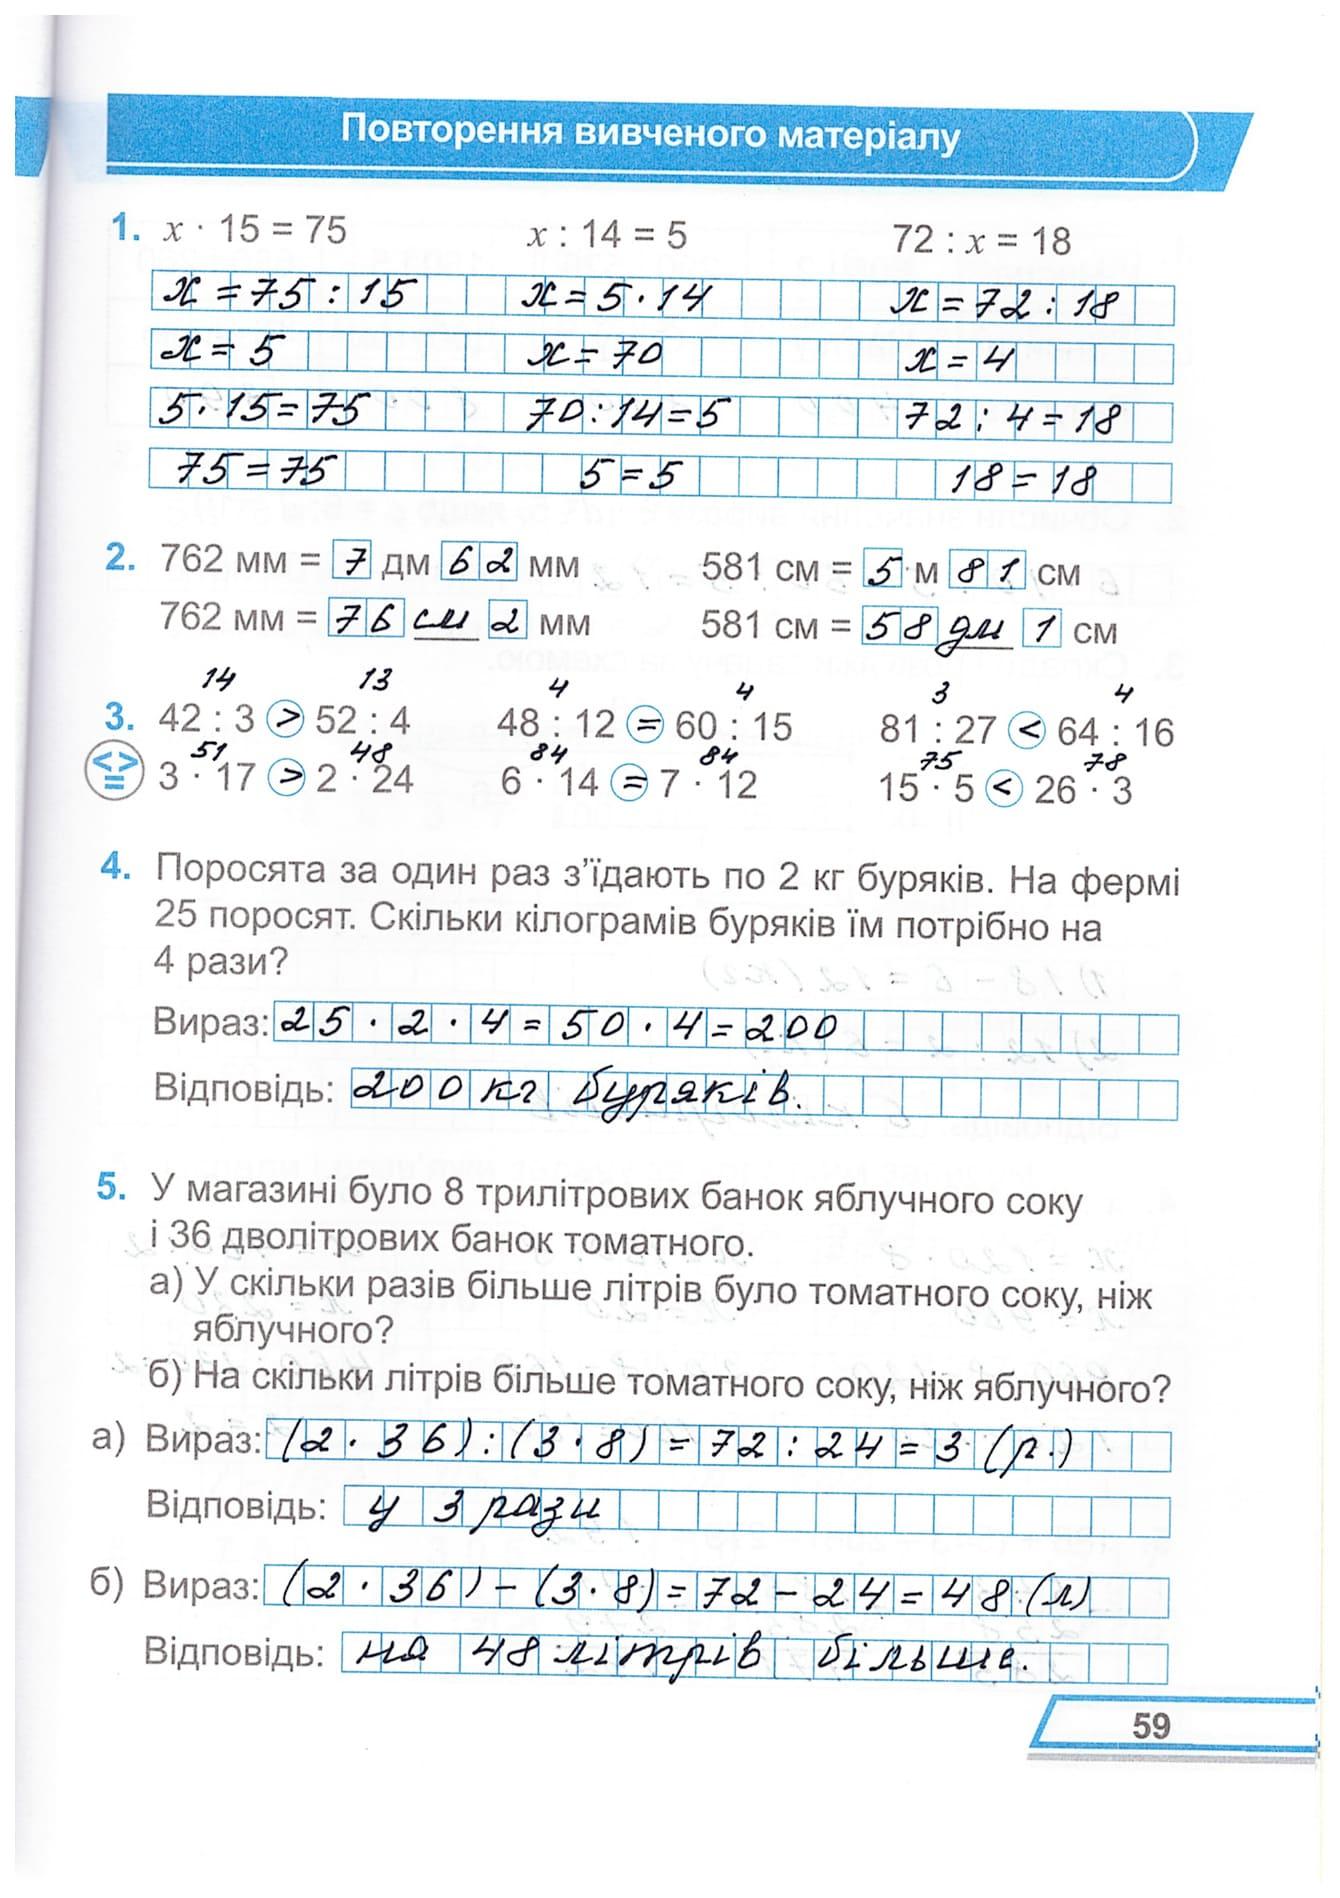 Повторення вивченого матеріалу
1. x · 15 = 75 x : 14 = 5 72 : x = 18
x = 75 : 15 x = 5 · 14 x = 72 : 18
x = 5 x = 70 x = 4
5 · 15 = 75 70 : 14 = 5 72 : 4 = 18
75 = 75 5 = 5 18 = 18
2. 762 мм = 7 дм 62 мм 581 см = 5 м 81 см
762 мм = 76 см 2 мм 581 см = 58 дм 1 см
14 13 4 4 3 4
3. 42 : 3 > 52 : 4 48 : 12 = 60 : 15 81 : 27 < 64 : 16
51 48 84 84 75 78
< > = 3 · 17 > 2 · 24 6 · 14 = 7 · 12 15 · 5 < 26 · 3
4. Поросята за один раз з’їдають по 2 кг буряків. На фермі
25 поросят. Скільки кілограмів буряків їм потрібно на
4 рази?
Вираз: 25 · 2 · 4 = 50 · 4 = 200
Відповідь: 200 кг буряків.
5. У магазині було 8 трилітрових банок яблучного соку
і 36 дволітрових банок томатного.
а) У скільки разів більше літрів було томатного соку, ніж
яблучного?
б) На скільки літрів більше томатного соку, ніж яблучного?
а) Вираз: (2 · 36) : (3 · 8) = 72 : 24 = 3 (р.)
Відповідь: у 3 рази
б) Вираз: (2 · 36) - (3 · 8) = 72 - 24 = 48 (л)
Відповідь: на 48 літрів більше.
59